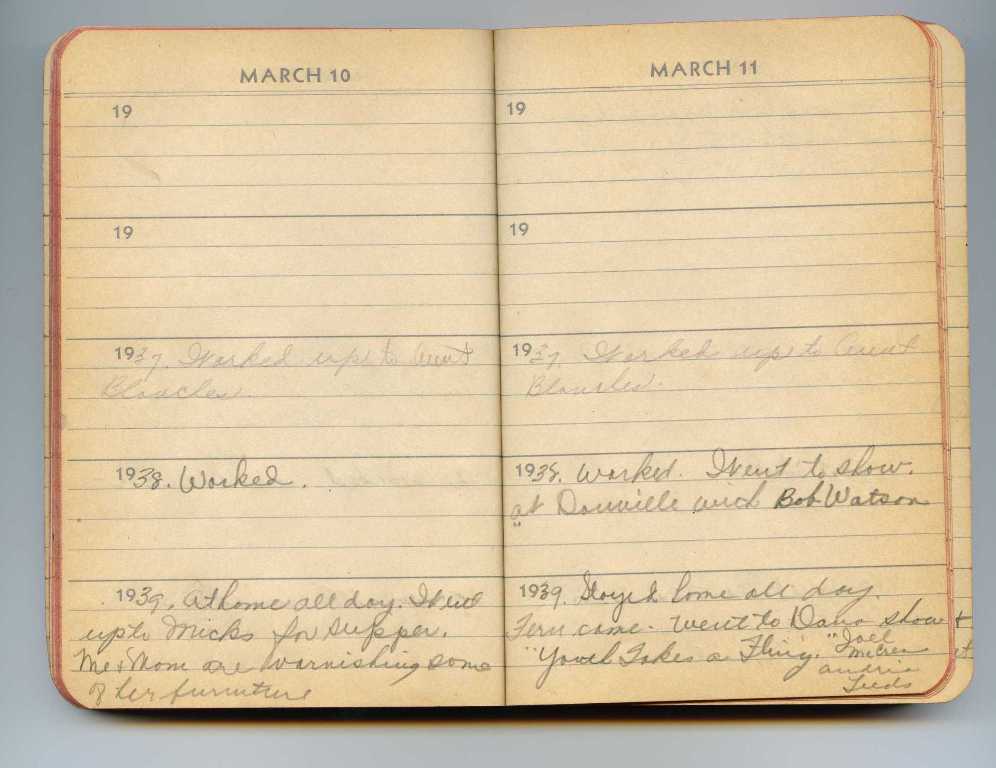 MARCH 10
19
19
1937. Worked up to Aunt
Blanches.
1938. Worked.
1939. At home all day. Went
up to Micks for supper.
Me & Mom are varnishing some
of her furniture
MARCH 11
19
19
1937 Worked up to Aunt
Blanches.
1938. Worked. Went to show.
at Danville with Bob Watson
1939. Stayed home all day.
Fern came. went to Dana show +
"Youth Takes a Fling." Joel
McCrea
andria
Leeds